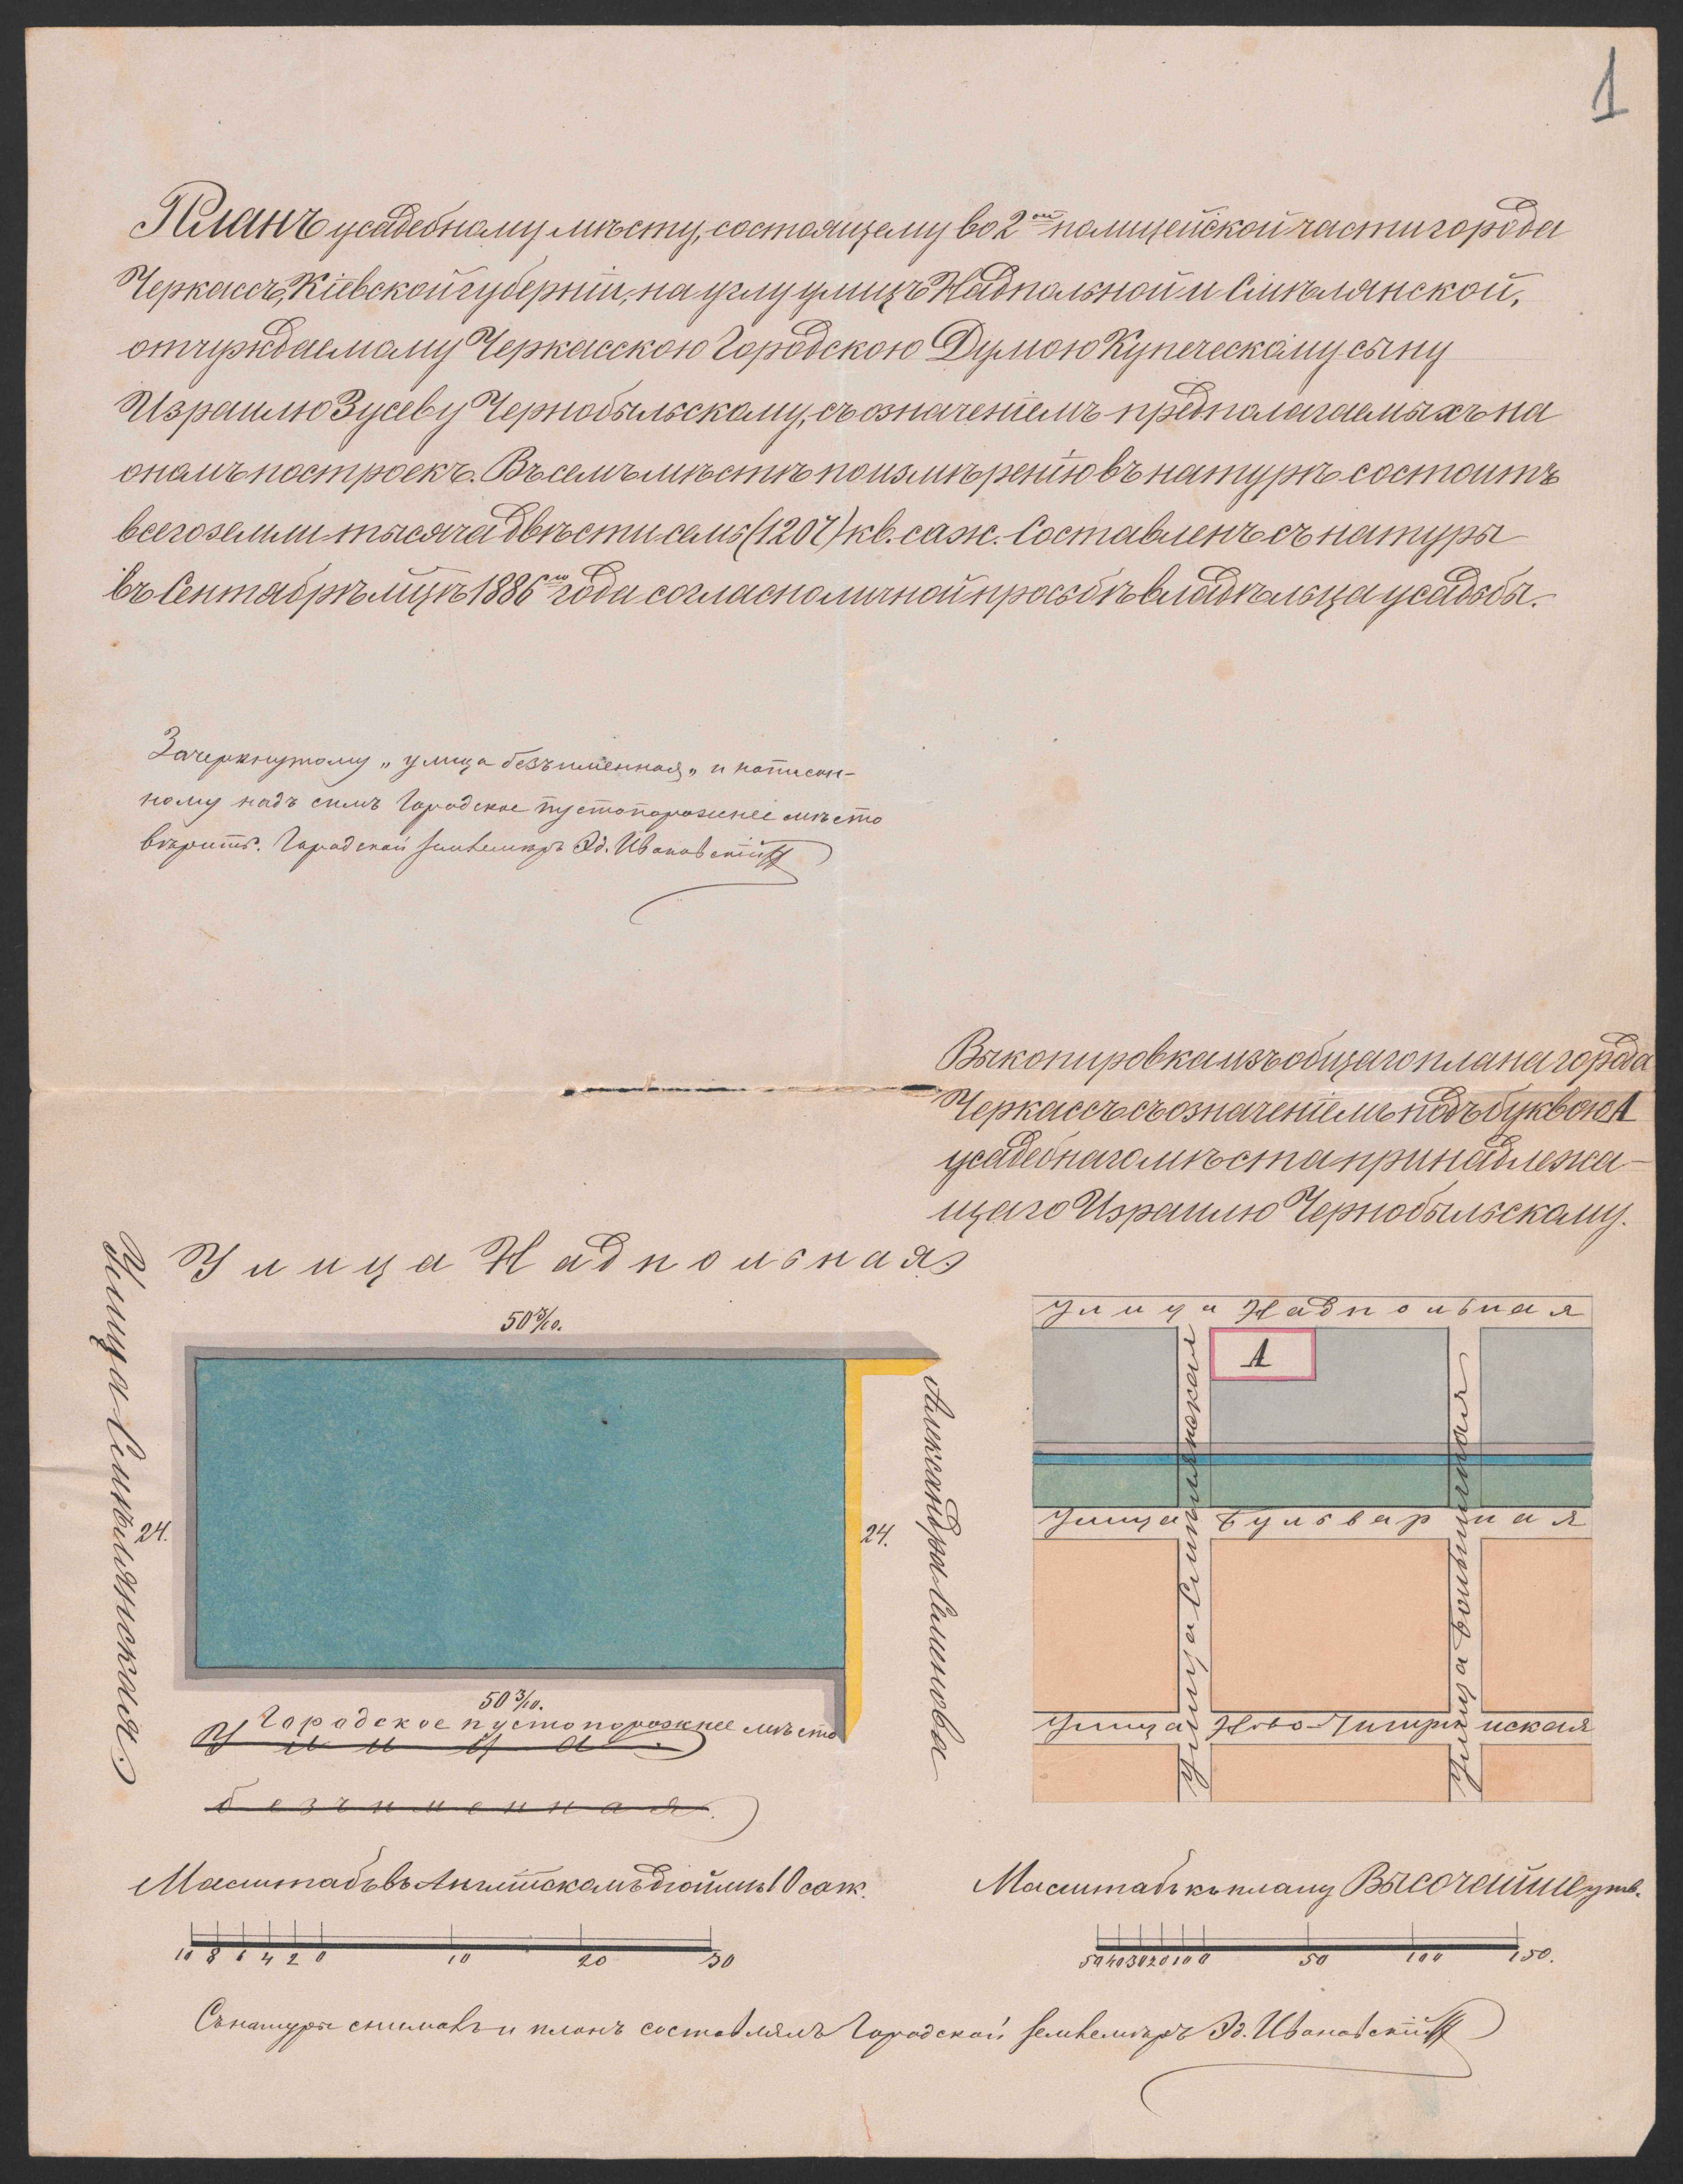 1
Планъ усадебному мѣсту, состоящему во 2ой полицейской части города
Черкассъ, Кіевской губерніи, на углу улицъ Надпольной и Смѣлянской,
отчуждаемому Черкасскою Городскою Думою Купеческому сыну
Израилю Зусеву Чернобыльскому, съ означеніемъ предполагаемыхъ на
ономъ построекъ. Въ семъ мѣстѣ по измѣренію въ натурѣ состоитъ
всего земли тысяча двѣсти семь (1207) кв. саж. Составленъ съ натуры
въ Сентябрѣ мцѣ 1886го года согласно личной просьбѣ владѣльца усадьбы.
Зачеркнутому „улица безъименная„ и написан-
ному надъ симъ Городское пустопорожнее мѣсто
вѣрить. Городской землемѣръ Эд. Ивановскій
Выкопировка изъ общаго плана города
Черкассъ съ означеніемъ подъ буквою А
усадебнаго мѣста принадлежа-
щаго Израилю Чернобыльскому.
Улица Надпольная
50 3/10.
Улица Смѣлянская
24.
24.
Александра Семенова
50 3/10.
Городское пустопорожнее мѣсто
Улица
безъименная.
Улица Надпольная
А
Улица Смѣлянская
Улица Бульварная
Улица Ново-Чигиринская
Масштабъ въ Англійскомъ дюймѣ 10 саж.
10 8 6 4 2 0 10 20 30
Масштабъ къ плану Высочайше утв.
50 40 30 20 10 0 50 100 150.
Съ натуры снималъ и планъ составлялъ Городской землемѣръ Эд. Ивановскій